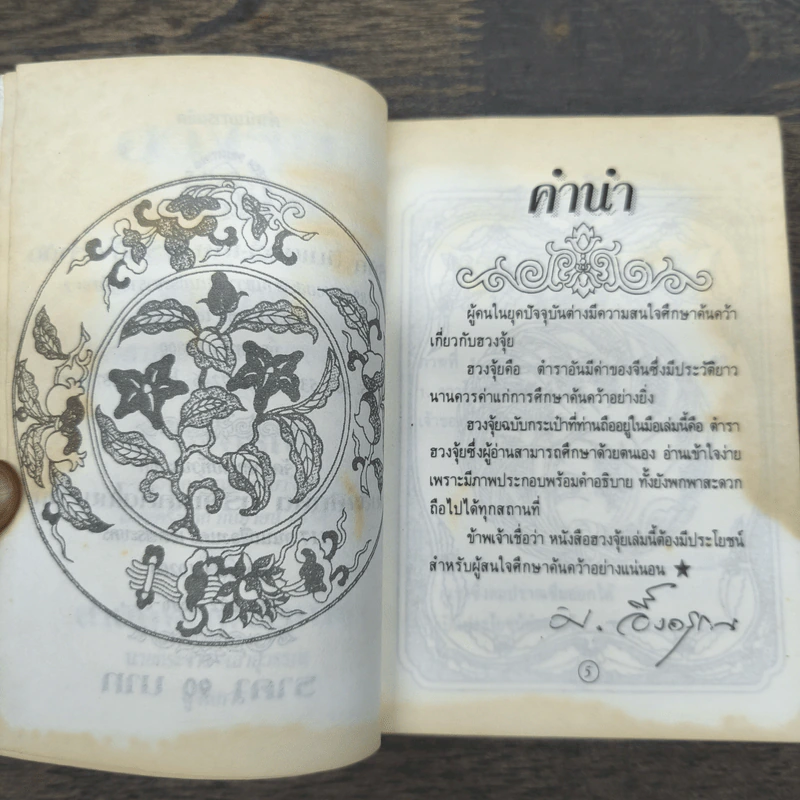 คำนำ
ผู้คนในยุคปัจจุบันต่างมีความสนใจศึกษาค้นคว้า
เกี่ยวกับฮวงจุ้ย
ฮวงจุ้ยคือ ตำราอันมีค่าของจีนซึ่งมีประวัติยาว
นานควรค่าแก่การศึกษาค้นคว้าอย่างยิ่ง
ฮวงจุ้ยฉบับกระเป๋าที่ท่านถืออยู่ในมือเล่มนี้คือ ตำรา
ฮวงจุ้ยซึ่งผู้อ่านสามารถศึกษาด้วยตนเอง อ่านเข้าใจง่าย
เพราะมีภาพประกอบพร้อมคำอธิบาย ทั้งยังพกพาสะดวก
ถือไปได้ทุกสถานที่
ข้าพเจ้าเชื่อว่า หนังสือฮวงจุ้ยเล่มนี้ต้องมีประโยชน์
สำหรับผู้สนใจศึกษาค้นคว้าอย่างแน่นอน ★
5